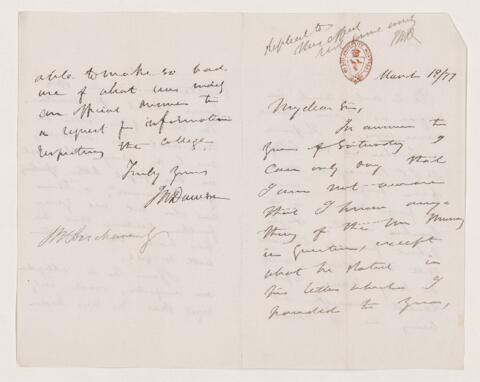 Replied to
this effect
March 19/77
My dear Sir,
In answer to
yours of Saturday I
can only say that
I am not aware
that I know any-
thing of the Mr Murray
in question, except
what he stated in
his letter which I
handed to you,
able to make so bad
use of what was
an official answer to
a request for information
respecting the College.
Truly yours
JWDawson